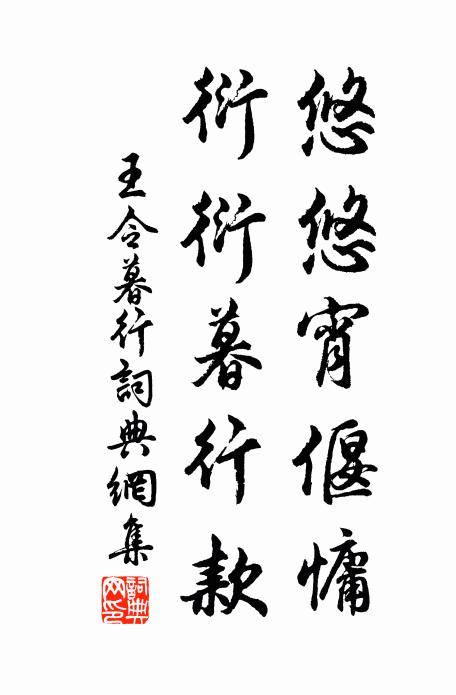 悠悠宵偃慵
衍衍暮行款
王令暮行詞典網集
詞典網印